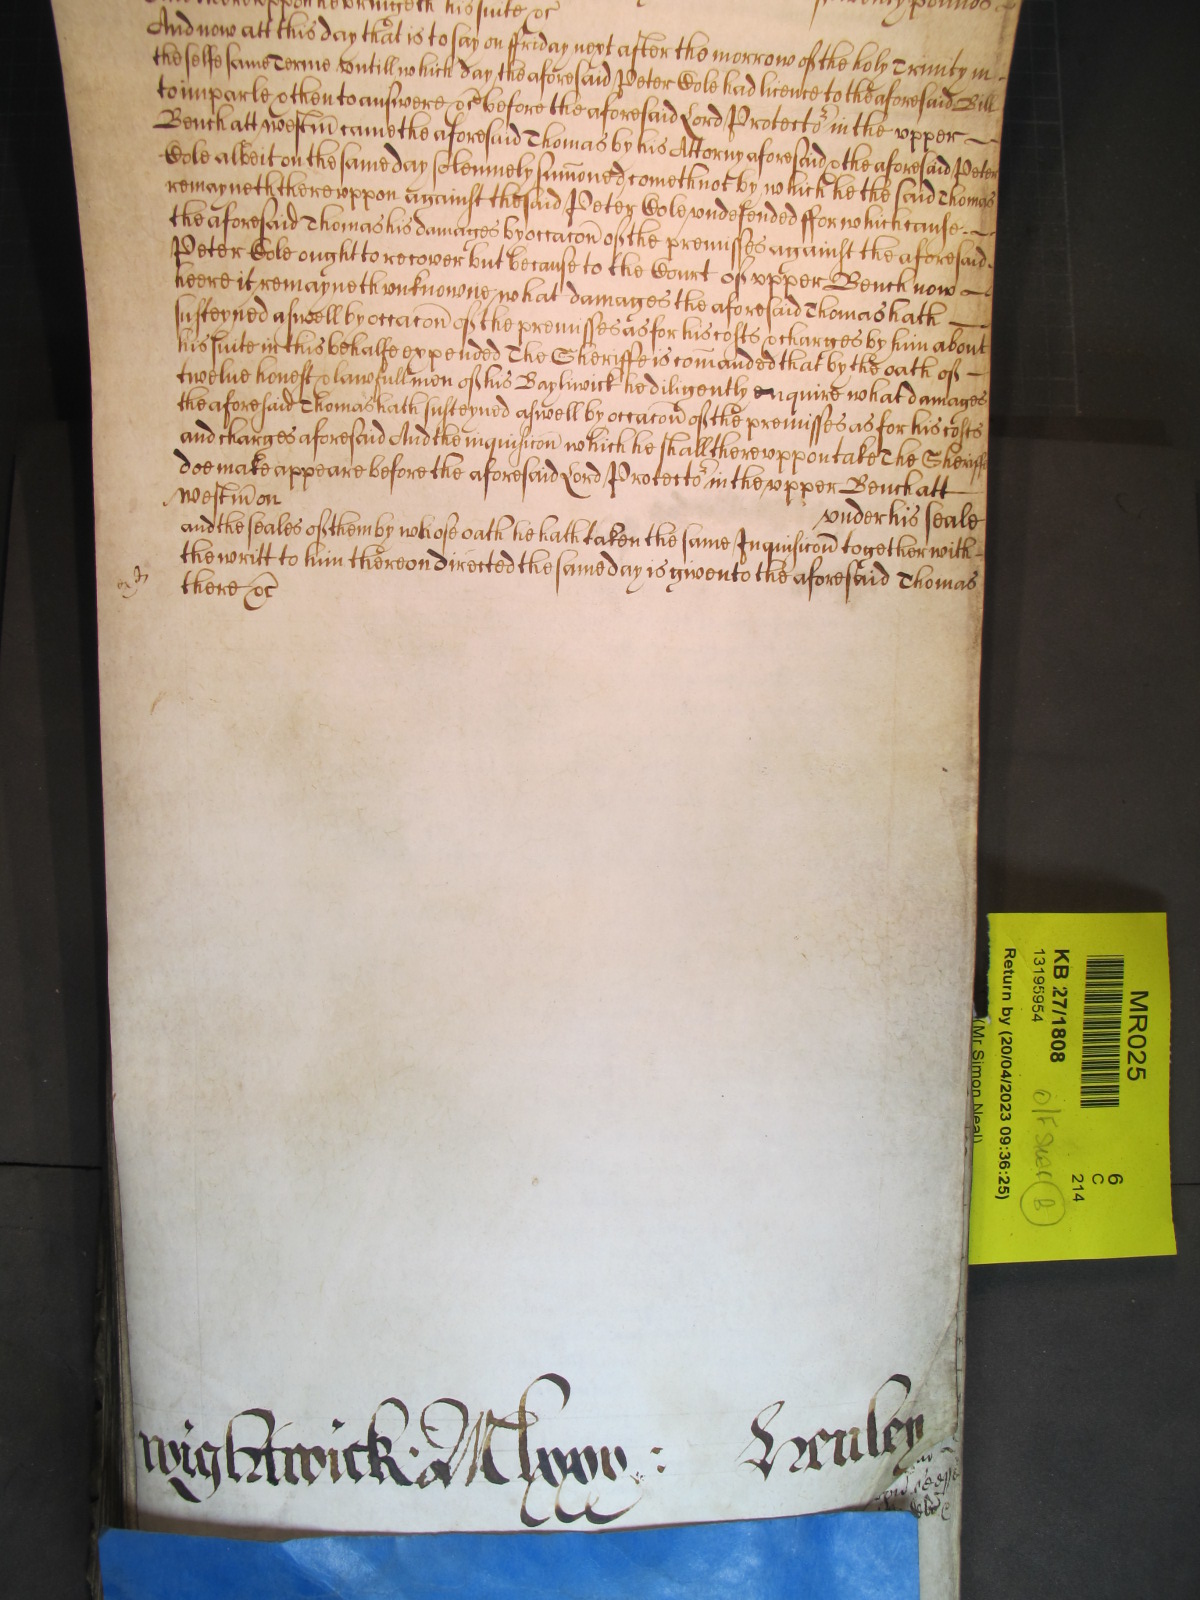 therevppon he bringeth his suite &c
twenty pounds
And now att this day that is to say on ffriday next after the morrow of the holy Trinity in
the selfe same Terme vntill which day the aforesaid Peter Cole had licence to the aforesaid Bill
to imparle & then to answere &c before the aforesaid Lord Protector in the vpper
Bench att Westm̄ came the aforesaid Thomas by his Attorny aforesaid & the aforesaid Peter
Cole albeit on the same day solemnely sum̄oned cometh not by which he the said Thomas
remayneth therevppon against the said Peter Cole vndefended ffor which cause
the aforesaid Thomas his damages by occac̄on of the premisses against the aforesaid
Peter Cole ought to recover but because to the Court of vpper Bench now
heere it remayneth vnknowne what damages the aforesaid Thomas hath
susteyned aswell by occac̄on of the premisses as for his costs & charges by him about
his suite in this behalfe expended The Sheriffe is com̄anded that by the oath of
twelue honest & lawfull men of his Bayliwick he diligently enquire what damages
the aforesaid Thomas hath susteyned aswell by occac̄on of the premisses as for his costs
and charges aforesaid And the inquisic̄on which he shall therevppon take The Sheriffe
doe make appeare before the aforesaid Lord Protector in the vpper Bench att
Westm̄ on vnder his seale
and the seales of them by whose oath he hath taken the same Inquisic̄on together with
the writt to him thereon directed the same day is given to the aforesaid Thomas
there &c
Wightwick: M lxxx : Henley
MR025
KB 27/1808
13195954
Return by (20/04/2023 09:36:25)
(Mr Simon Neal)
6
C
214
O/F Shelf B